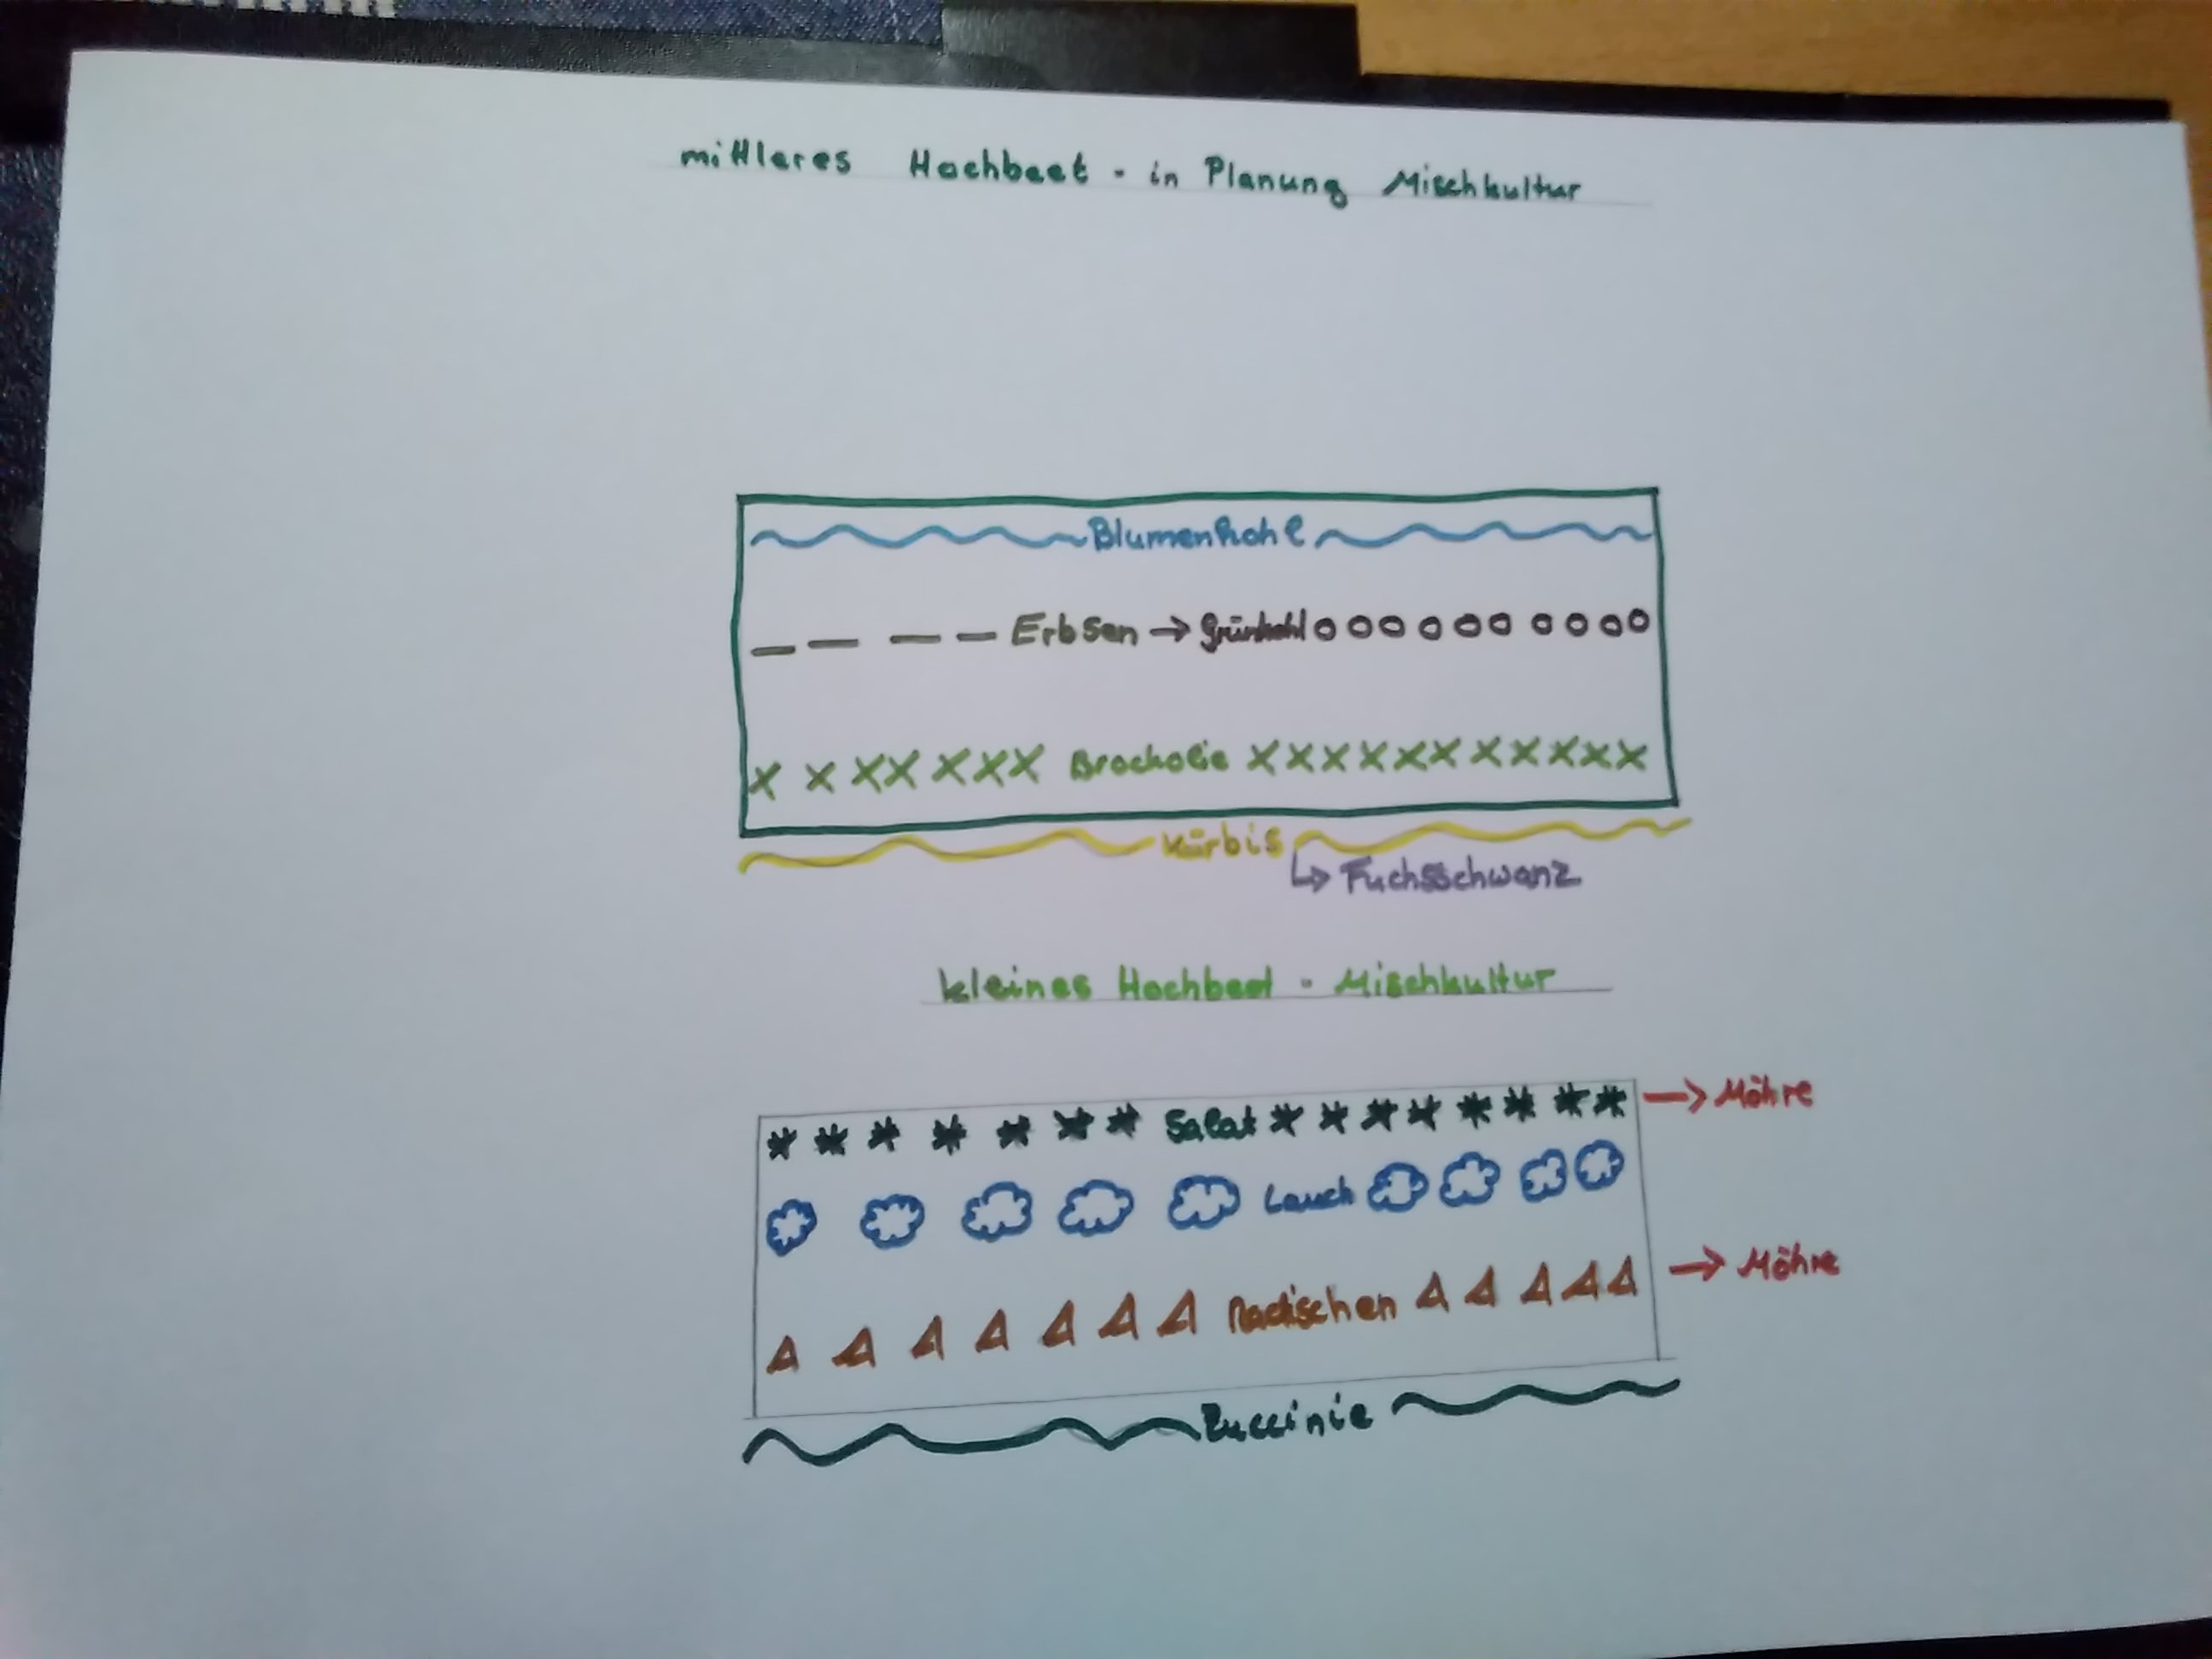 mittleres Hochbeet - in Planung Mischkultur
Blumenkohl
Erbsen → Grünkohl
Brockolie
Kürbis
↳ Fuchsschwanz
kleines Hochbeet - Mischkultur
Salat → Möhre
Lauch
Radischen → Möhre
Zuccinie